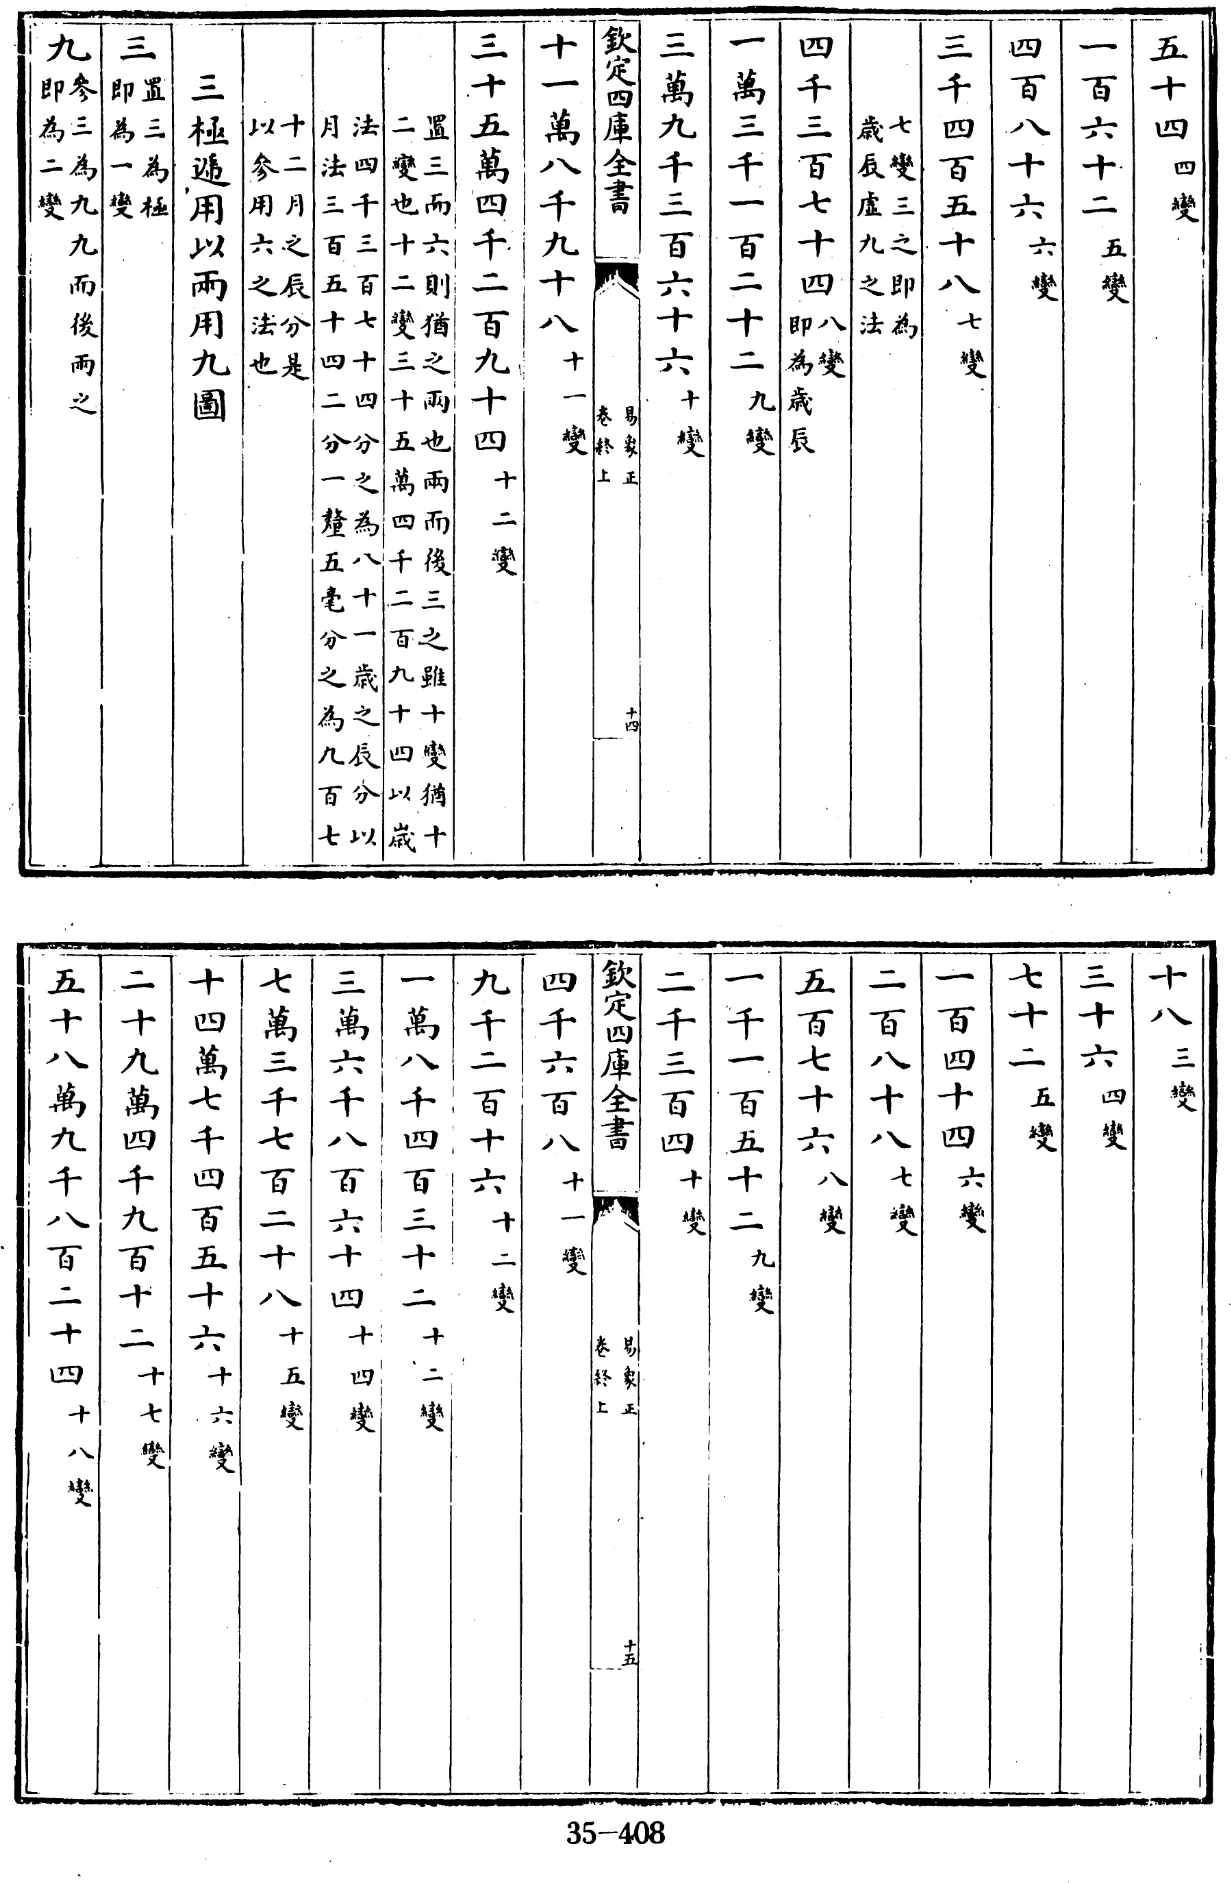 五十四四變
一百六十二五變
四百八十六六變
三千四百五十八七變
七變三之即為
歲辰虛九之法
四千三百七十四八變
即為歲辰
一萬三千一百二十二九變
三萬九千三百六十六十變
欽定四庫全書
易象正
卷終上
十四
十一萬八千九十八十一變
三十五萬四千二百九十四十二變
置三而六則猶之兩也兩而後三之雖十變猶十
二變也十二變三十五萬四千二百九十四以歲
法四千三百七十四分之為八十一歲之辰分以
月法三百五十四二分一釐五毫分之為九百七
十二月之辰分是
以參用六之法也
三極遞用以兩用九圖
三置三為極
即為一變
九參三為九九而後兩之
即為二變
十八三變
三十六四變
七十二五變
一百四十四六變
二百八十八七變
五百七十六八變
一千一百五十二九變
二千三百四十變
欽定四庫全書
易象正
卷終上
十五
四千六百八十一變
九千二百十六十二變
一萬八千四百三十二十二變
三萬六千八百六十四十四變
七萬三千七百二十八十五變
十四萬七千四百五十六十六變
二十九萬四千九百十二十七變
五十八萬九千八百二十四十八變
35-408